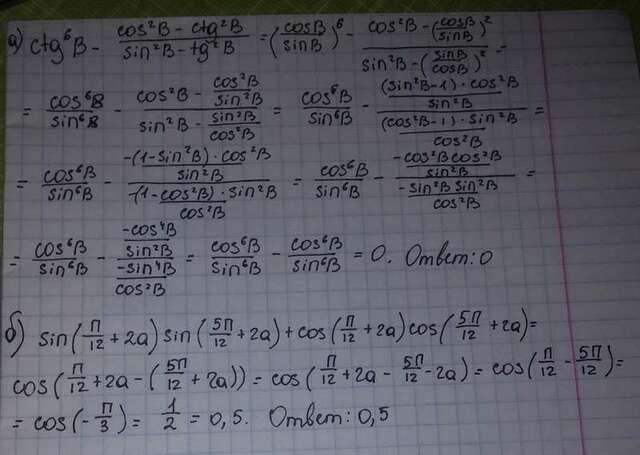 а) ctg⁶B - (cos²B - ctg²B)/(sin²B - tg²B) = (cosB/sinB)⁶ - (cos²B - (cosB/sinB)²)/(sin²B - (sinB/cosB)²) =
= cos⁶B/sin⁶B - (cos²B - cos²B/sin²B)/(sin²B - sin²B/cos²B) = cos⁶B/sin⁶B - ((sin²B-1)·cos²B/sin²B)/((cos²B-1)·sin²B/cos²B) =
= cos⁶B/sin⁶B - (-(1-sin²B)·cos²B/sin²B)/(-(1-cos²B)·sin²B/cos²B) = cos⁶B/sin⁶B - (-cos²B cos²B/sin²B)/(-sin²B sin²B/cos²B) =
= cos⁶B/sin⁶B - (-cos⁴B/sin²B)/(-sin⁴B/cos²B) = cos⁶B/sin⁶B - cos⁶B/sin⁶B = 0. Ответ: 0
б) sin(П/12 + 2a) sin(5П/12 + 2a) + cos(П/12 + 2a) cos(5П/12 + 2a) =
cos(П/12 + 2a - (5П/12 + 2a)) = cos(П/12 + 2a - 5П/12 - 2a) = cos(П/12 - 5П/12) =
= cos(-П/3) = 1/2 = 0,5. Ответ: 0,5